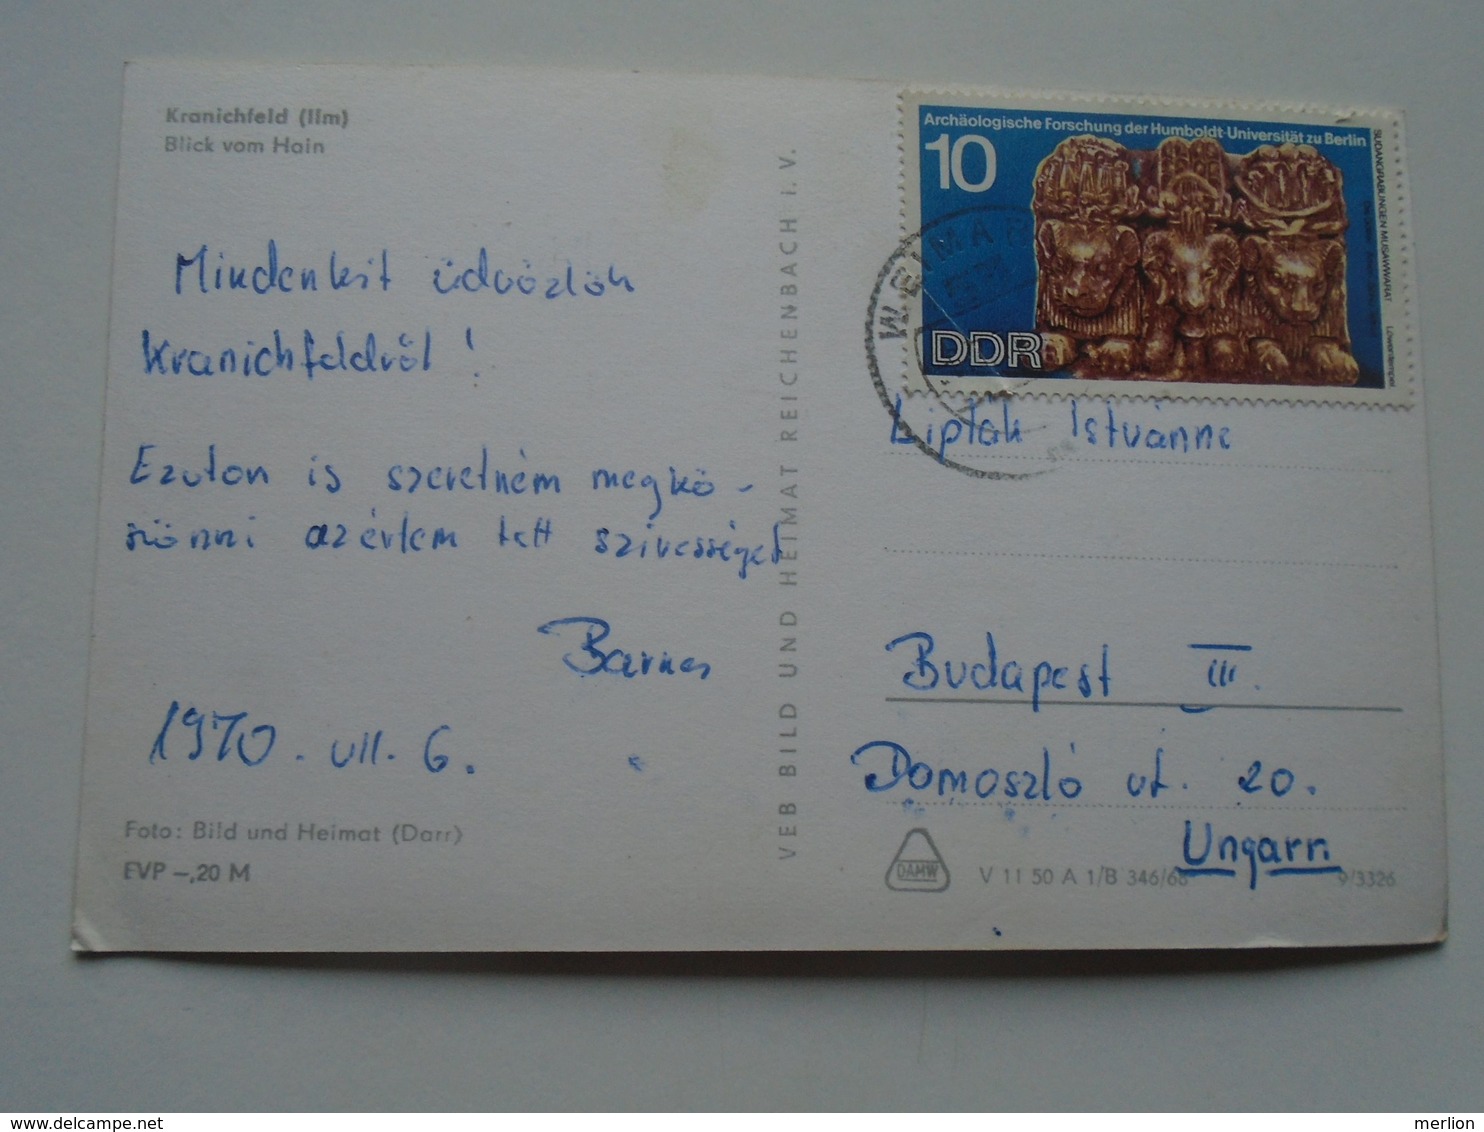 Kranichfeld (Ilm)
Blick vom Hain
Mindenkit üdvözlök
Kranichfeldről!
Ezúton is szeretném megkö-
szönni azértem tett szivességet
1970. VII. 6.
Foto: Bild und Heimat (Darr)
EVP –,20 M
VEB BILD UND HEIMAT REICHENBACH I. V.
Archäologische Forschung der Humboldt-Universität zu Berlin
10
SUDANGRABUNGEN MUSAWWARAT
Löwentempel
DDR
WEIMAR
Lipták Istvánne
Budapest III.
Domoszló ut. 20.
Ungarn
DAMW
V 11 50 A 1/B 346/68
9/3326
merlion